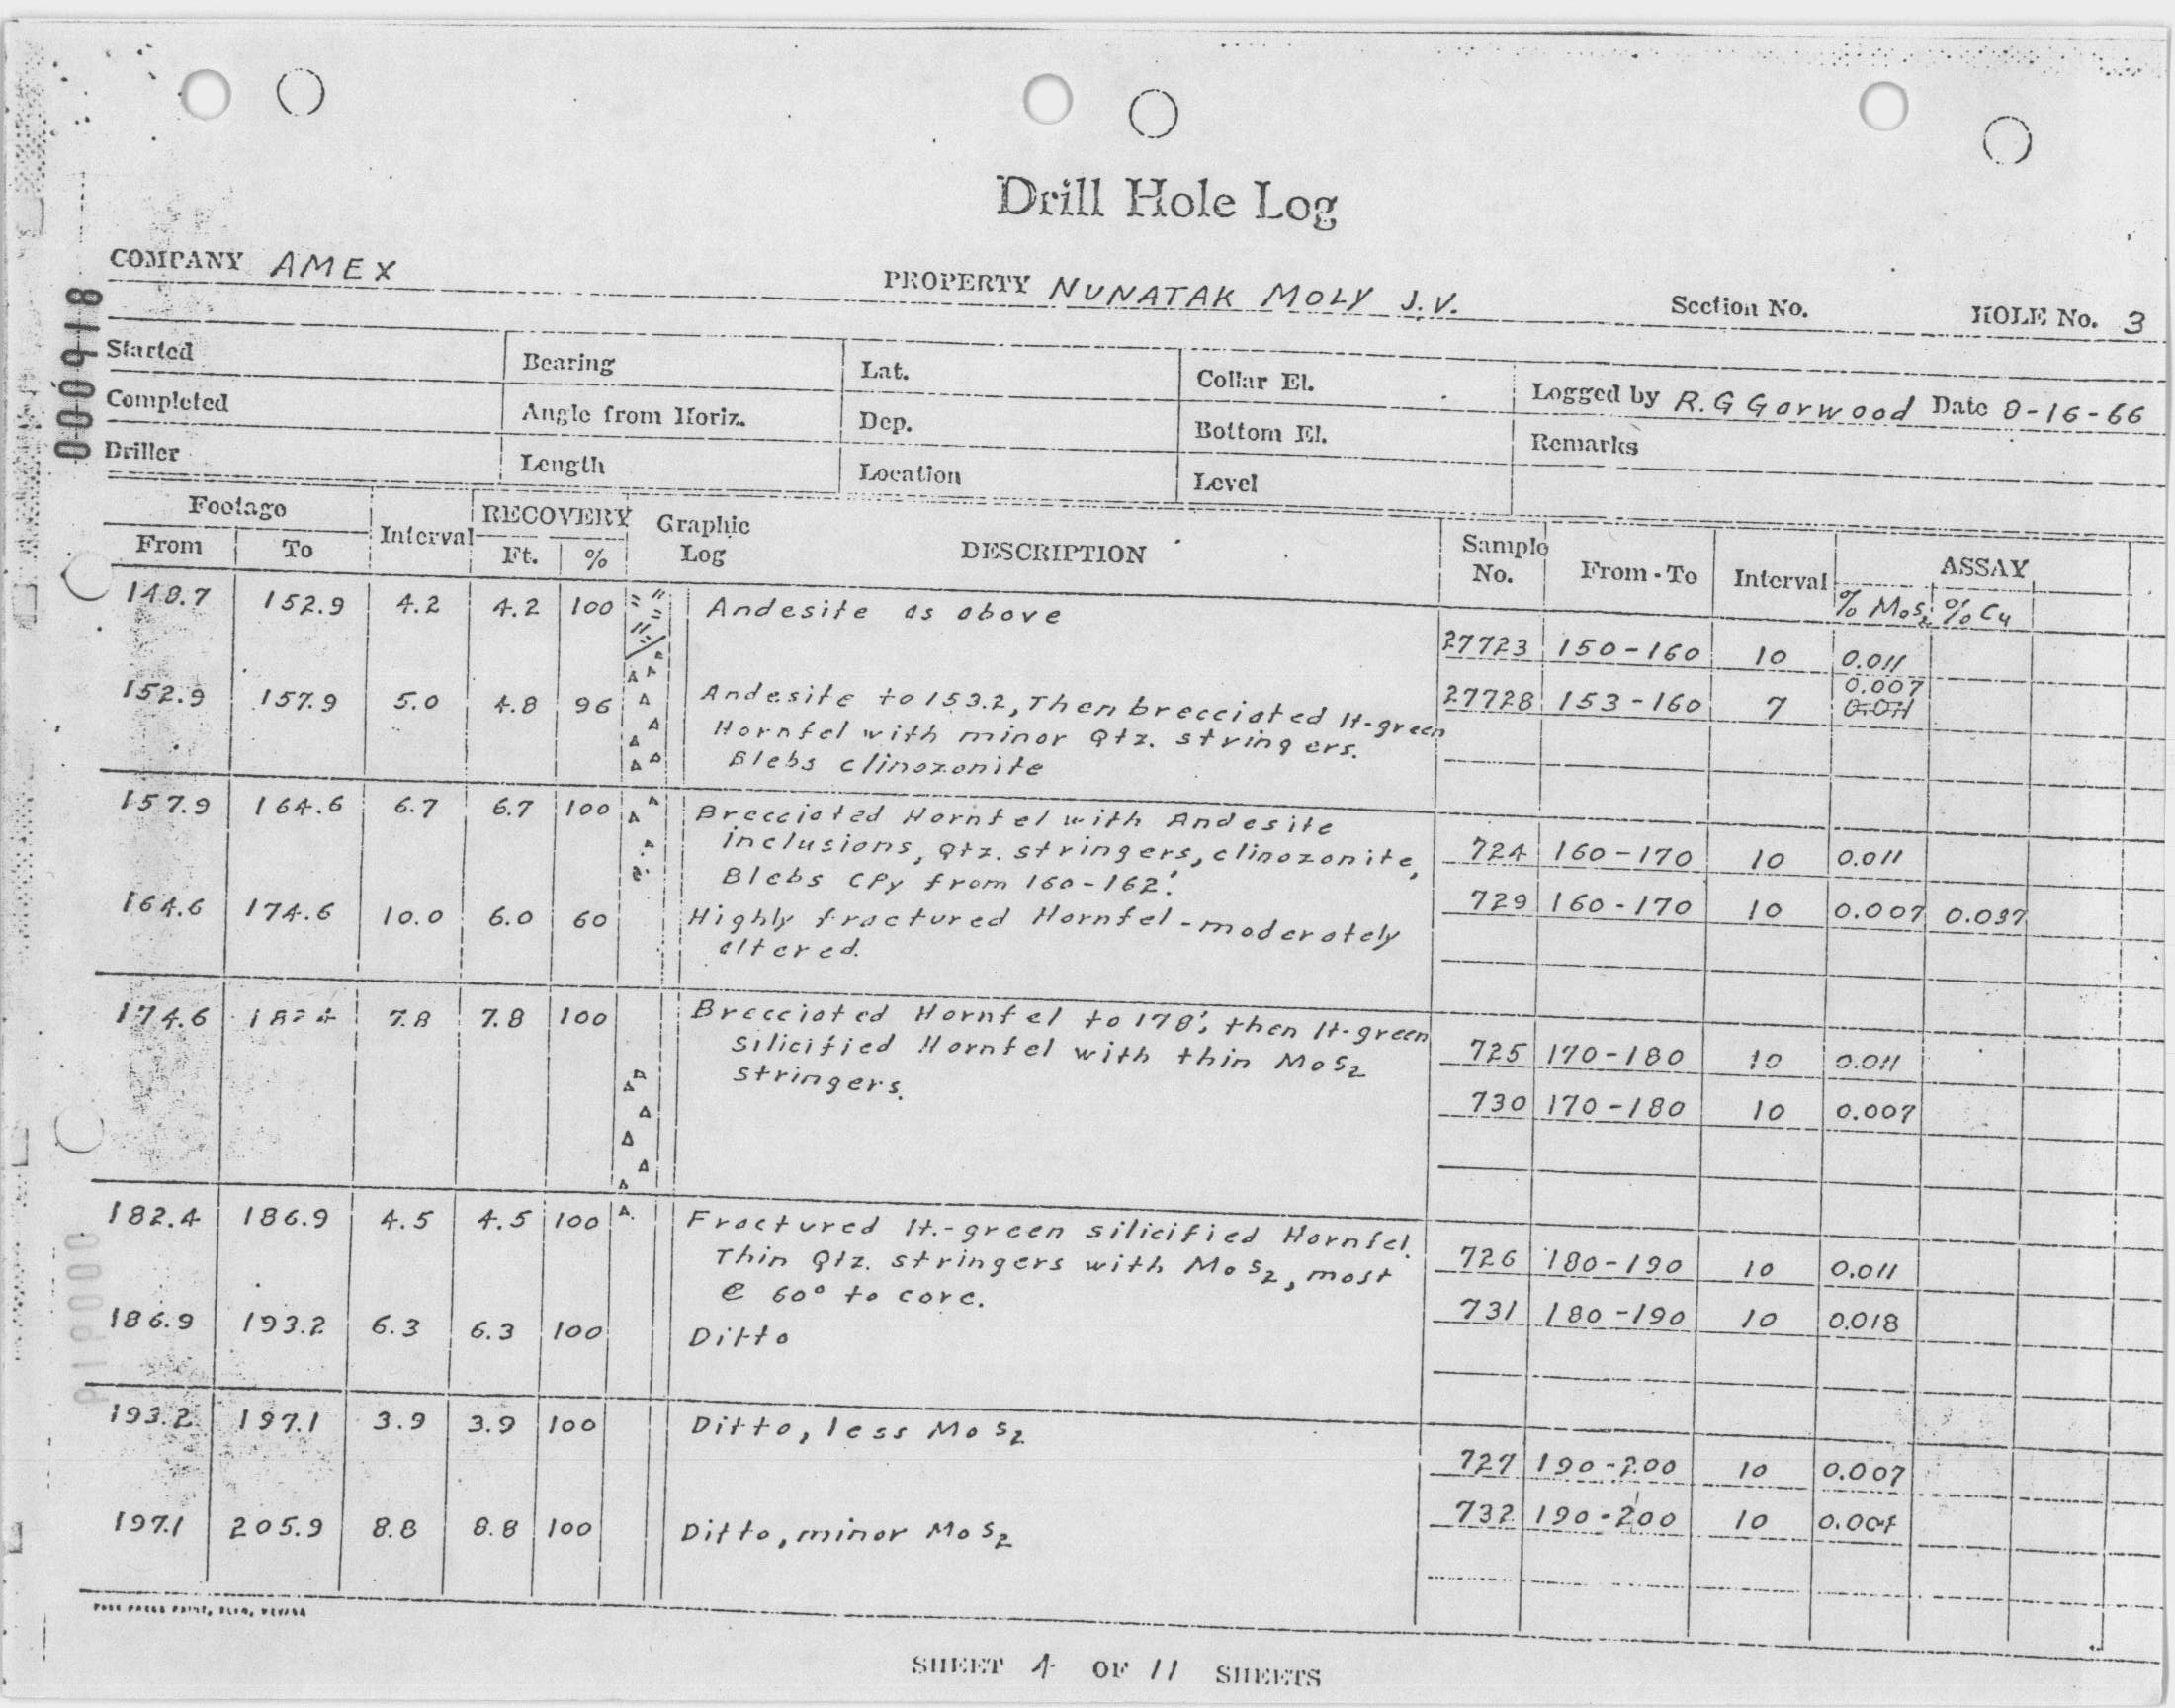 Drill Hole Log
COMPANY AMEX PROPERTY NUNATAK MOLY J.V. Section No. HOLE No. 3
000918
Started Bearing Lat. Collar El. Logged by R.G Garwood Date 8-16-66
Completed Angle from Horiz. Dep. Bottom El. Remarks
Driller Length Location Level
Footage Interval RECOVERY Graphic Log DESCRIPTION Sample No. From - To Interval ASSAY
From To Ft. % % MoS2 % Cu
148.7 152.9 4.2 4.2 100 Andesite as above
27723 150-160 10 0.011
0.007
152.9 157.9 5.0 4.8 96 Andesite to 153.2, Then brecciated lt-green 27728 153-160 7 0.011
Hornfel with minor Qtz. stringers.
Blebs clinozonite
157.9 164.6 6.7 6.7 100 Brecciated Hornfel with Andesite
inclusions, Qtz. stringers, clinozonite, 724 160-170 10 0.011
Blebs CPy from 160-162'.
164.6 174.6 10.0 6.0 60 Highly fractured Hornfel - moderately 729 160-170 10 0.007 0.037
altered.
174.6 182.4 7.8 7.8 100 Brecciated Hornfel to 178', then lt-green
silicified Hornfel with thin MoS2 725 170-180 10 0.011
stringers.
730 170-180 10 0.007
182.4 186.9 4.5 4.5 100 Fractured lt.-green silicified Hornfel.
Thin Qtz. stringers with MoS2, most 726 180-190 10 0.011
@ 60° to core.
186.9 193.2 6.3 6.3 100 Ditto 731 180-190 10 0.018
193.2 197.1 3.9 3.9 100 Ditto, less MoS2
727 190-200 10 0.007
197.1 205.9 8.8 8.8 100 Ditto, minor MoS2 732 190-200 10
SHEET 4 OF 11 SHEETS